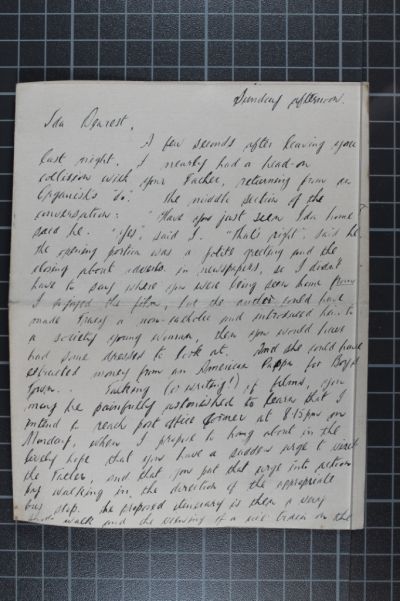 Sunday afternoon.
Ida Dearest,
A few seconds after leaving you
last night, I nearly had a head-on
collision with your Father, returning from an
Organist's "do". The middle section of the
conversation: "Have you just seen Ida home"
said he. "Yes", said I. "That's right", said he
the opening portion was a polite greeting and the
closing about adverts. in newspapers, so I didn't
have to say where you were being seen home from
I enjoyed the film, but the author could have
made Tracy a non-catholic and introduced him to
a society young woman, then you would have
had some dresses to look at. And she could have
extracted money from an American Pappa for Boys
Town. Talking (or writing!) of films, you
may be painfully astonished to learn that I
intend to reach post office corner at 8.15pm on
Monday, when I propose to hang about in the
lovely hope that you have a sudden urge to visit
the Factor, and that you put that urge into action
by walking in the direction of the appropriate
bus stop. The proposed itinerary is then a very
short walk and the viewing of a on the